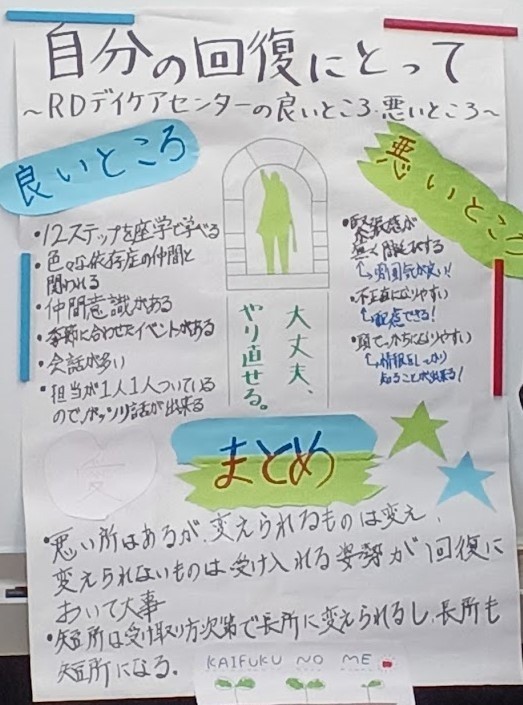 自分の回復にとって
～RDデイケアセンターの良いところ・悪いところ～
良いところ
・12ステップを座学で学べる
・色々な依存症の仲間と
関われる
・仲間意識がある
・季節に合わせたイベントがある
・会話が多い
・担当が1人1人ついている
ので、ガッツリ話が出来る
大丈夫、
やり直せる。
悪いところ
・緊張感が
無く間延びする
↳雰囲気が良い!
・不正直になりやすい
↳配慮できる!
・頭でっかちになりやすい
↳情報をしっかり
知ることが出来る!
愛
まとめ
・悪い所はあるが、変えられるものは変え、
変えられないものは受け入れる姿勢が回復に
おいて大事
・短所は受け取り方次第で長所に変えられるし、長所も
短所になる。
KAIFUKU NO ME